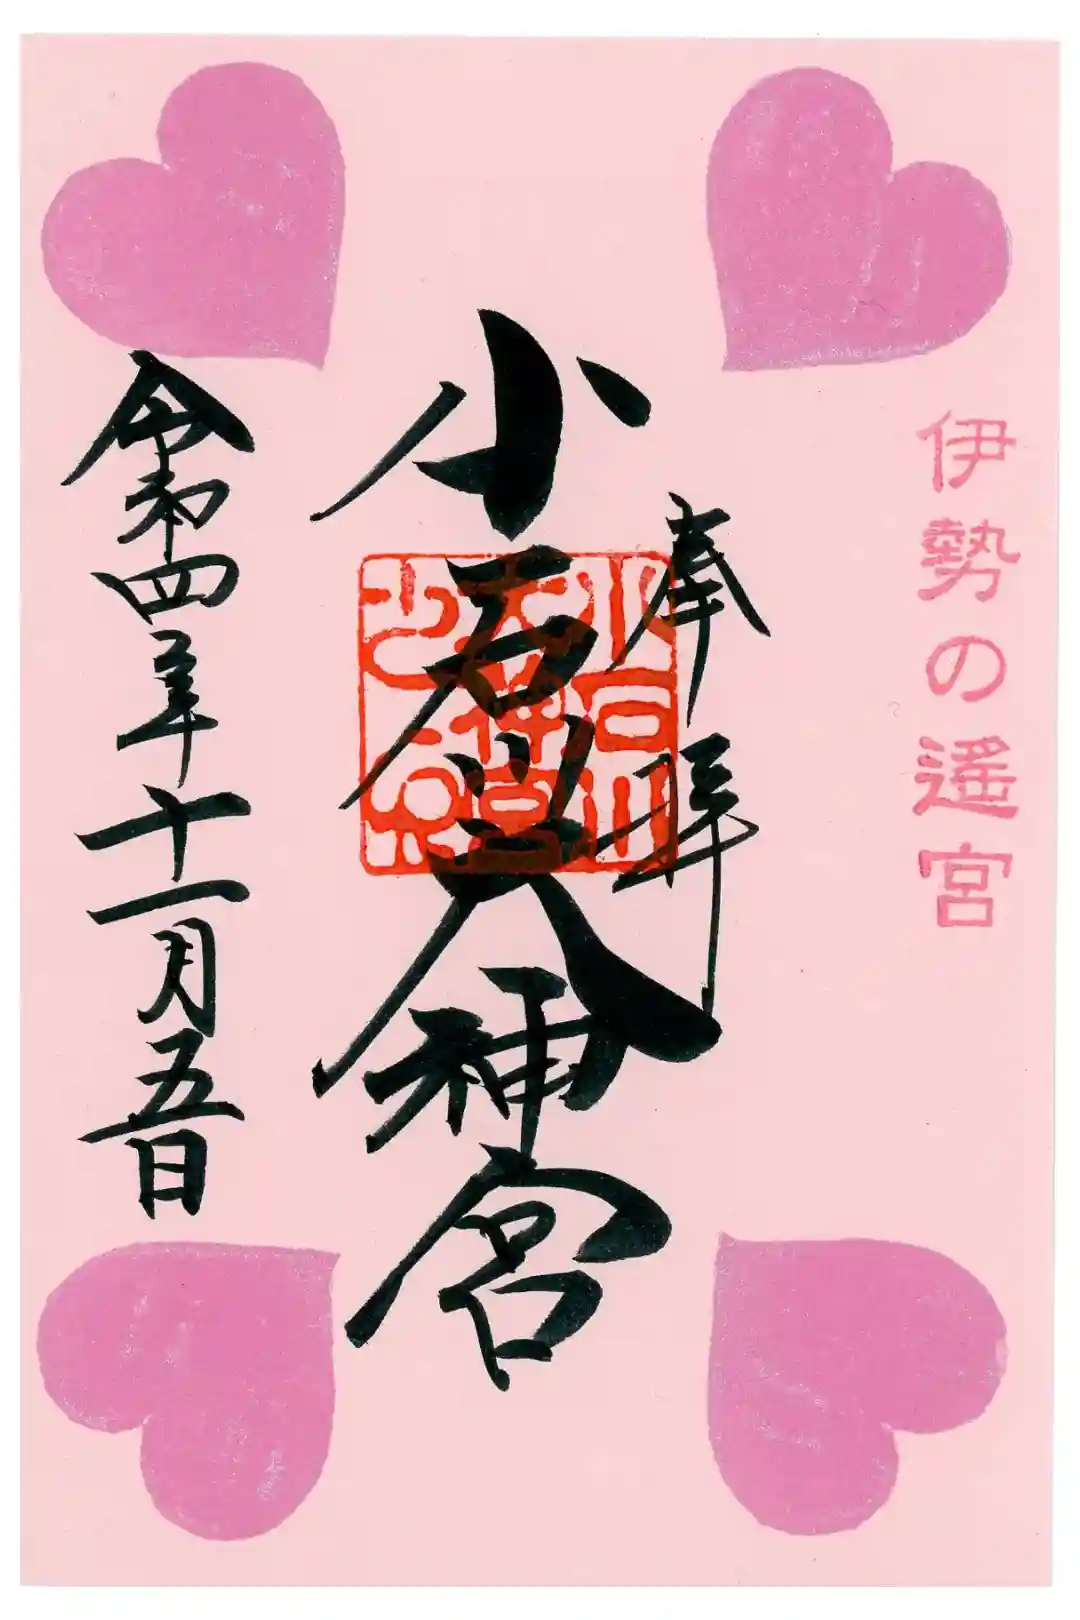 伊勢の遙宮
奉拝
小石川大神宮
令和四年十一月五日
小石川
大神宮